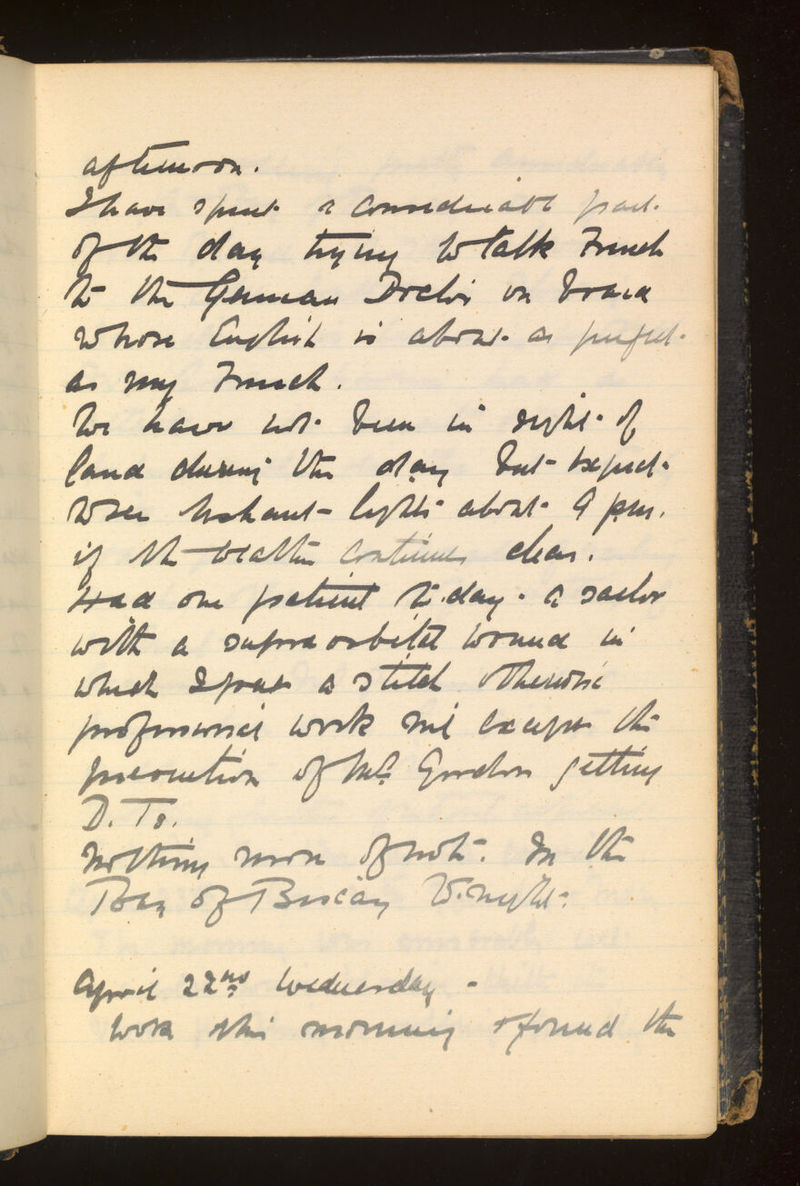 afternoon.
I have spent a considerable part
of the day trying to talk French
to the German Doctor on board
whose English is about as perfect
as my French.
We have not been in sight of
land during the day but expect
to see Ushant lights about 9 pm.
if the weather continues clear.
Had one patient to-day - a sailor
with a supraorbital wound in
which I put a stitch otherwise
professional work nil except the
of Mr. Gordon getting
D. Ts.
Nothing more of note. In the
Bay of Biscay to-night.
April 22nd Wednesday -
Woke this morning & found the